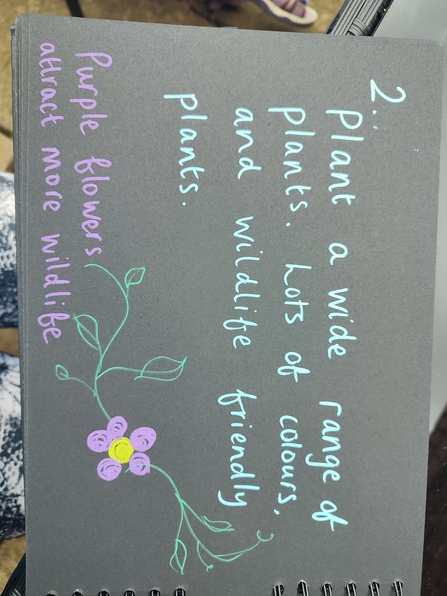 2..
Plant a wide range of
plants. Lots of colours,
and wildlife friendly
plants.
Purple flowers
attract more wildlife